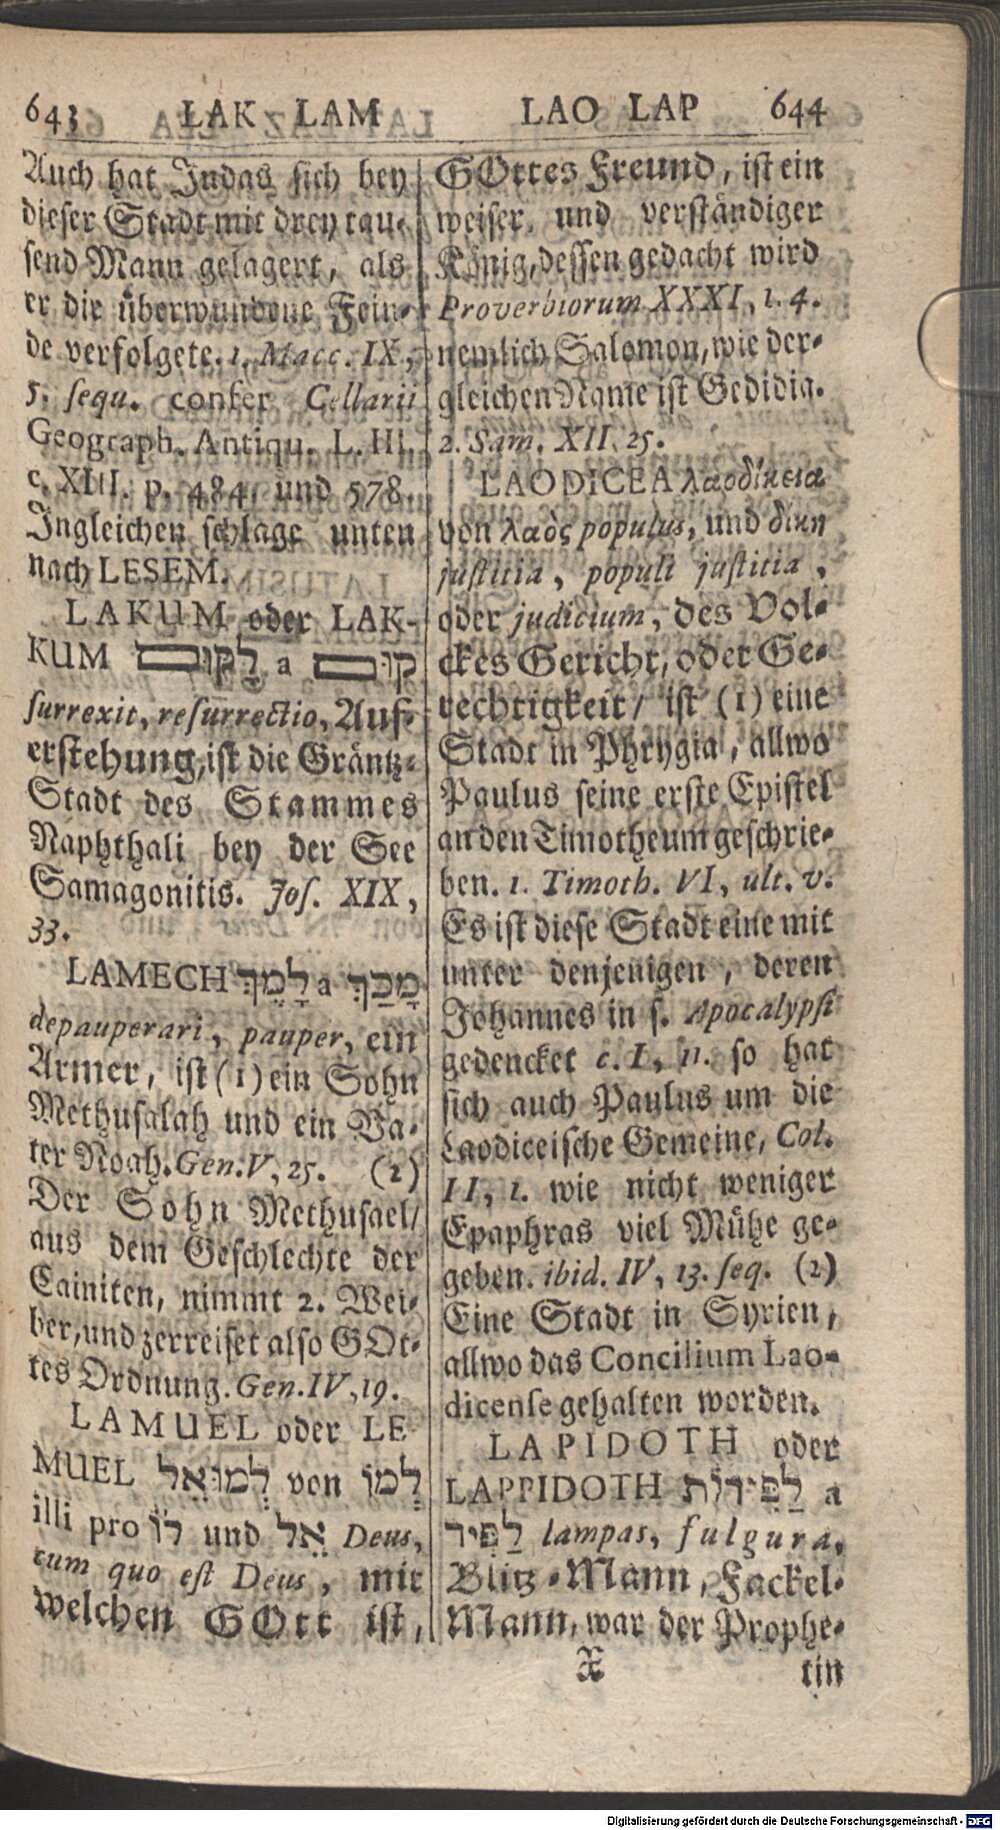 643 LAK LAM
Auch hat Judas sich bey
dieser Stadt mit drey tau-
send Mann gelagert, als
er die überwundene Fein-
de verfolgete. 1. Macc. IX,
5. sequ. confer Cellarii
Geograph. Antiqu. L. III.
c. XIII. p. 484. und 578.
Ingleichen schlage unten
nach LESEM.
LAKUM oder LAK-
KUM לַקּוּם a קוּם
surrexit, resurrectio, Auf-
erstehung, ist die Gräntz-
Stadt des Stammes
Naphthali bey der See
Samagonitis. Jos. XIX,
33.
LAMECH לָמֶךְ a מָכַךְ
depauperari, pauper, ein
Armer, ist (1) ein Sohn
Methusalah und ein Va-
ter Noah. Gen. V, 25. (2)
Der Sohn Methusael/
aus dem Geschlechte der
Cainiten, nimmt 2. Wei-
ber, und zerreiset also GOt-
tes Ordnung. Gen. IV, 19.
LAMUEL oder LE-
MUEL לְמוּאֵל von לְמוֹ
illi pro לוֹ und אֵל Deus,
cum quo est Deus, mit
welchen GOtt ist,
LAO LAP 644
GOttes Freund, ist ein
weiser, und verständiger
König, dessen gedacht wird
Proverbiorum XXXI, 1. 4.
nemlich Salomon, wie der-
gleichen Name ist Gedidia.
2. Sam. XII. 25.
LAODICEA λαοδίκεια
von λαὸς populus, und δίκη
justitia, populi justitia,
oder judicium, des Vol-
ckes Gericht, oder Ge-
rechtigkeit/ ist (1) eine
Stadt in Phrygia, allwo
Paulus seine erste Epistel
an den Timotheum geschrie-
ben. 1. Timoth. VI, ult. v.
Es ist diese Stadt eine mit
unter denjenigen, deren
Johannes in s. Apocalypsi
gedencket c. I, 11. so hat
sich auch Paulus um die
Laodiceische Gemeine, Col.
II, 1. wie nicht weniger
Epaphras viel Mühe ge-
geben. ibid. IV, 13. seq. (2)
Eine Stadt in Syrien,
allwo das Concilium Lao-
dicense gehalten worden.
LAPIDOTH oder
LAPPIDOTH לַפִּידוֹת a
לַפִּיד lampas, fulgura,
Blitz-Mann, Fackel-
Mann, war der Prophe-
X tin
Digitalisierung gefördert durch die Deutsche Forschungsgemeinschaft - DFG